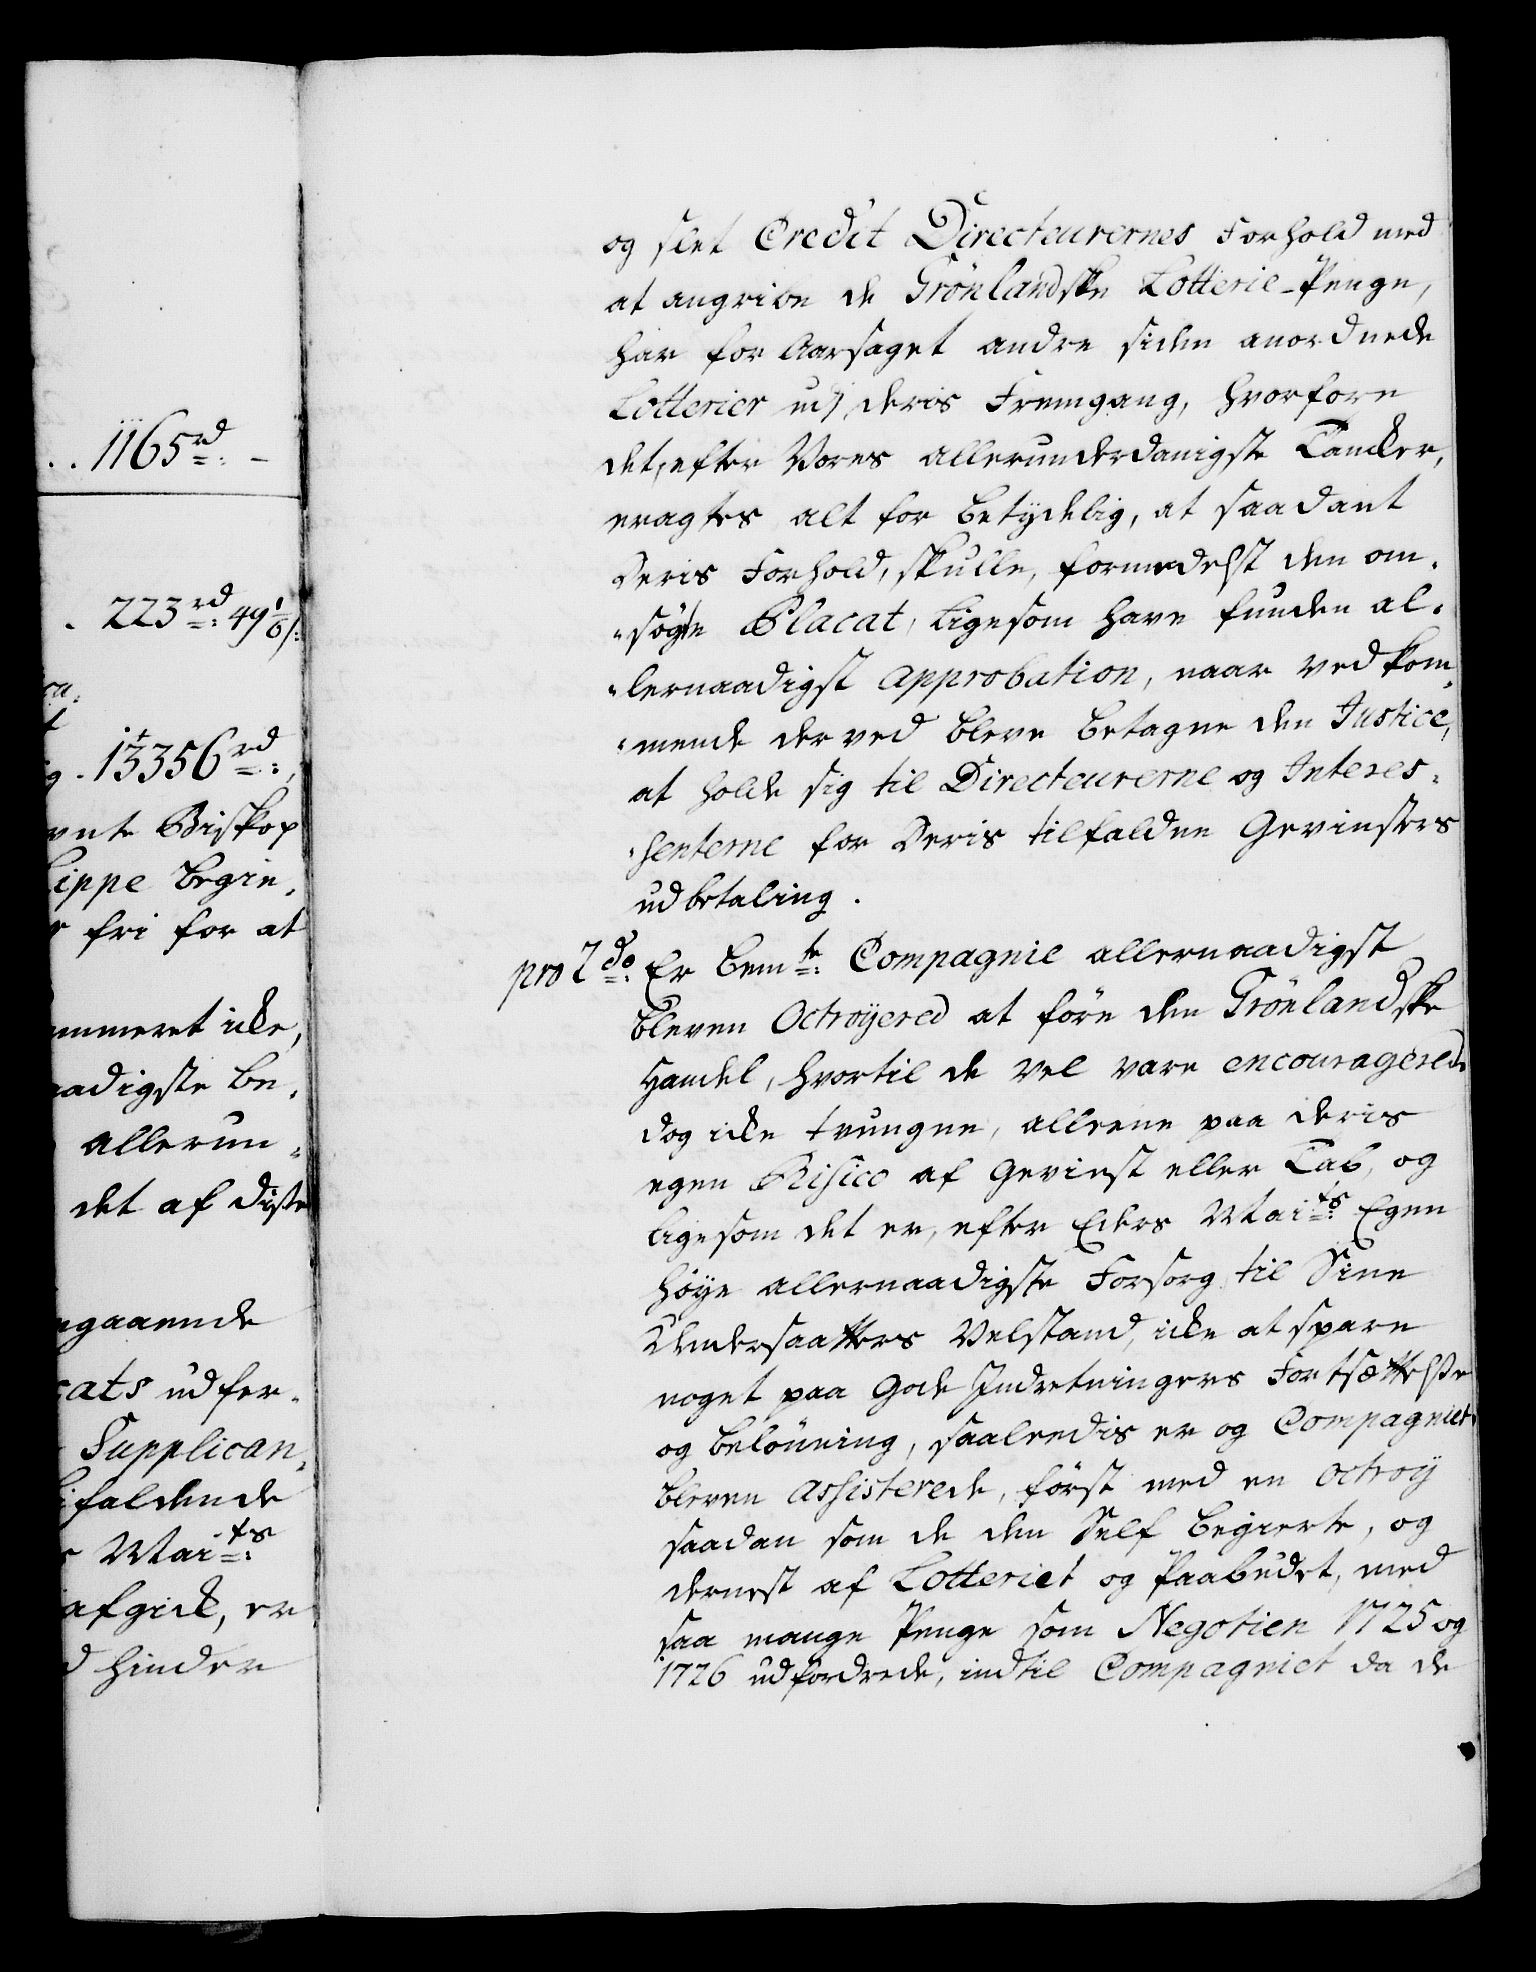 . . 1165 rd -
. 223 rd 49 1/6 s:
13356 rd
Biskop
Lippe begie,
fri for at
icke,
be,
allerun,
det af diste
ngaaende
cats udfer,
Supplican,
ifaldende
Mai ts
afgick, er
hinder
og slet Credit Directeurernes Forhold med
at angribe de Grönlandske Lotterie-Penge,
har foraarsaget andre siden anordnede
Lotterier udj deris Fremgang, hvorfore
det, efter Vores allerunderdanigste Tancker,
eragtes alt for betydelig, at saadant
Deris Forhold, skulle, formedelst den om,
„søgte Placat, ligesom have funden al,
„lernaadigst approbation, naar vedkom,
„mende derved bleve betagne den Justice,
at holde sig til Directeurerne og Interes,
„senterne for Deris tilfaldne Gevinsters
udbetaling.
pro 2do Er bemte: Compagnie allernaadigst
bleven Octroyered at före den Grönlandske
Handel, hvortil de vel vare encouragered,
dog icke tvungne, alleene paa deris
egen Risico af Gevinst eller Tab, og
ligesom det er, efter Eders Maits: Egen
høye allernaadigste Forsorg til Sine
Undersaatters Velstand, icke at spare
noget paa Gode Indretningers Fortsættelse
og belönning, saaleedis er og Compagniet
bleven assisterede, först med en Octroy
saadan som de den Self begierte, og
dernest af Lotteriet og Paabudet, med
saa mange Penge som Negotien 1725 og
1726 udfordrede, indtil Compagniet da de